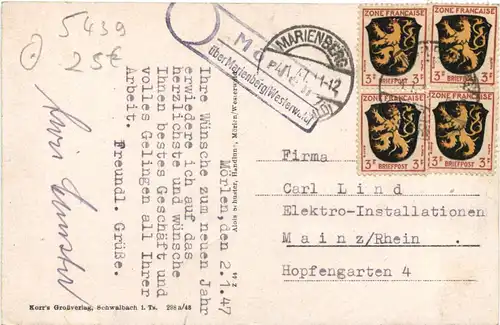 5439
25€
MARIENBERG
11-12
über Marienberg(Westerwald)
ZONE FRANÇAISE
3 PF
BRIEFPOST
ZONE FRANÇAISE
3 PF
BRIEFPOST
ZONE FRANÇAISE
3 PF
BRIEFPOST
ZONE FRANÇAISE
3 PF
BRIEFPOST
Mörlen,den 2.1.47
Ihre Wünsche zum neuen Jahr
erwiedere ich auf das
herzlichste und wünsche
Ihnen bestes Geschäft und
volles Gelingen all Ihrer
Arbeit.
Freundl. Grüße.
Alois Schuster, Handlung, Mörlen/Westerwald
Z 44
Firma
Carl Lind
Elektro-Installationen
Mainz/Rhein .
Hopfengarten 4
Korr's Großverlag, Schwalbach i. Ts. 298a/46